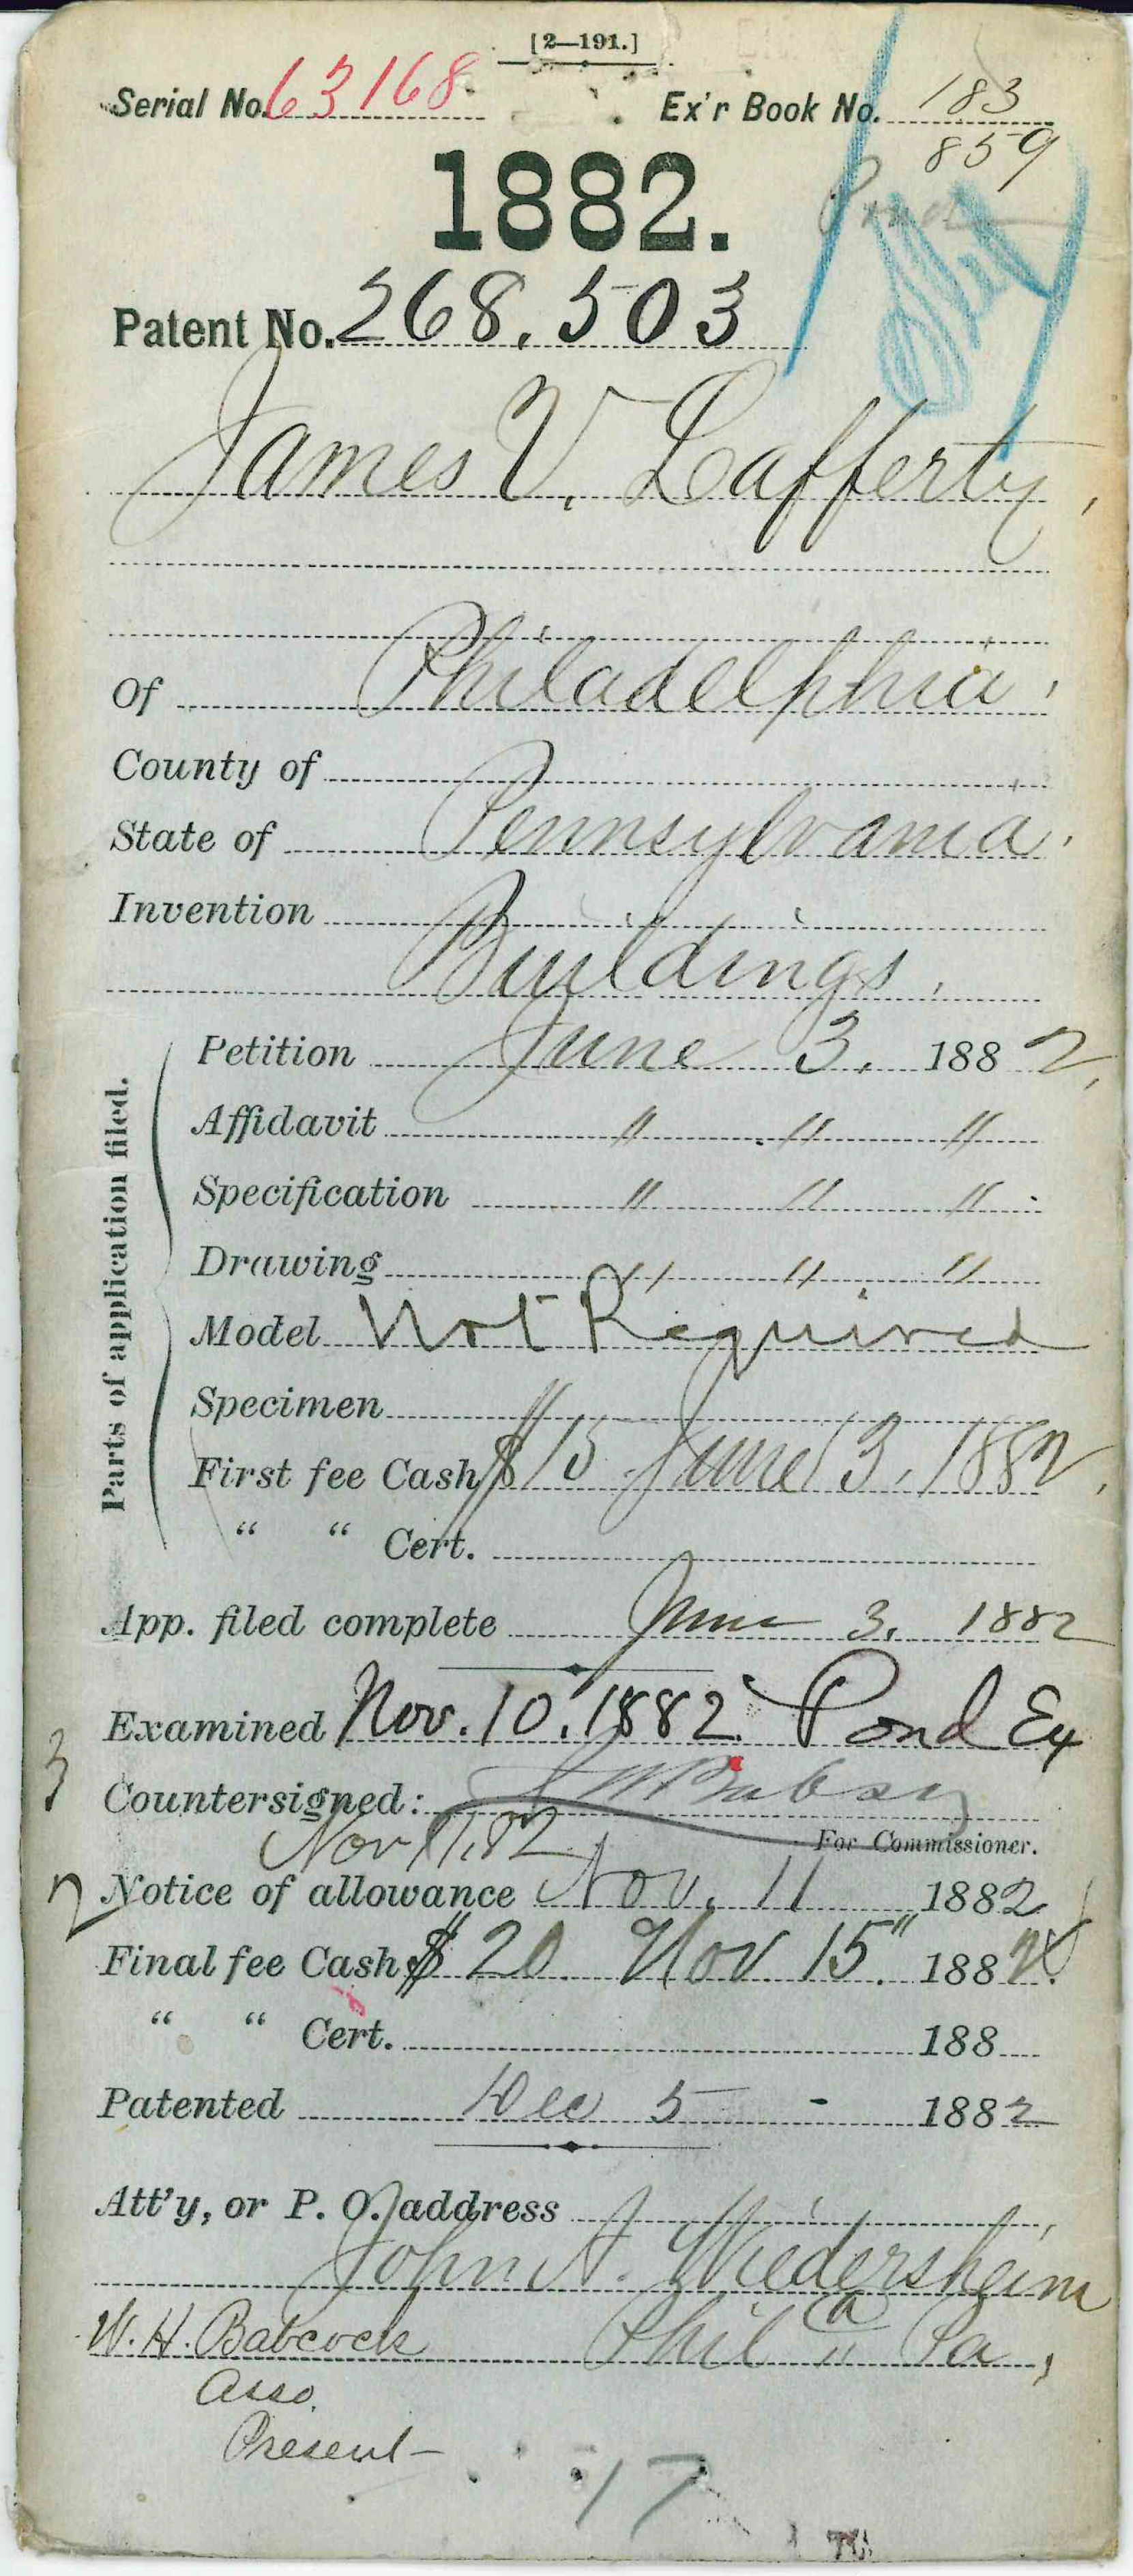 [2—191.]
Serial No. 63168 Ex'r Book No. 183
859
1882.
Pond
Patent No. 268,503
James V. Lafferty,
Of Philadelphia,
County of
State of Pennsylvania.
Invention
Buildings.
Parts of application filed.
Petition June 3, 1882,
Affidavit " " "
Specification " " "
Drawing " " "
Model Not Required
Specimen
First fee Cash $15 June 3, 1882,
" " Cert.
App. filed complete June 3, 1882
Examined Nov. 10. 1882. Pond Ex
3
Countersigned:
Nov 11, 82 For Commissioner.
2 Notice of allowance Nov. 11 1882
Final fee Cash $20 Nov 15" 1882.
" " Cert. 188
Patented Dec 5 - 1882
Att'y, or P. O. address
John A. Wiedersheim
W. H. Babcock Phila Pa,
Asso.
Present
17